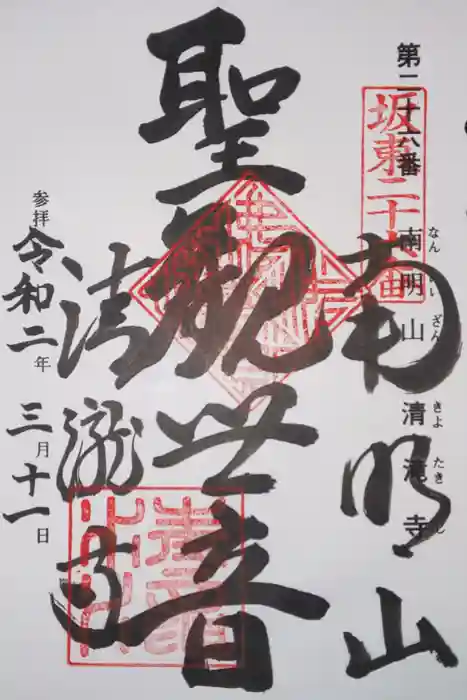 第二十六番
坂東二十六番
南明山 清滝寺
なん い ざん きよ たき
南明山
聖観世音
清瀧寺
参拝 令和二年三月十一日